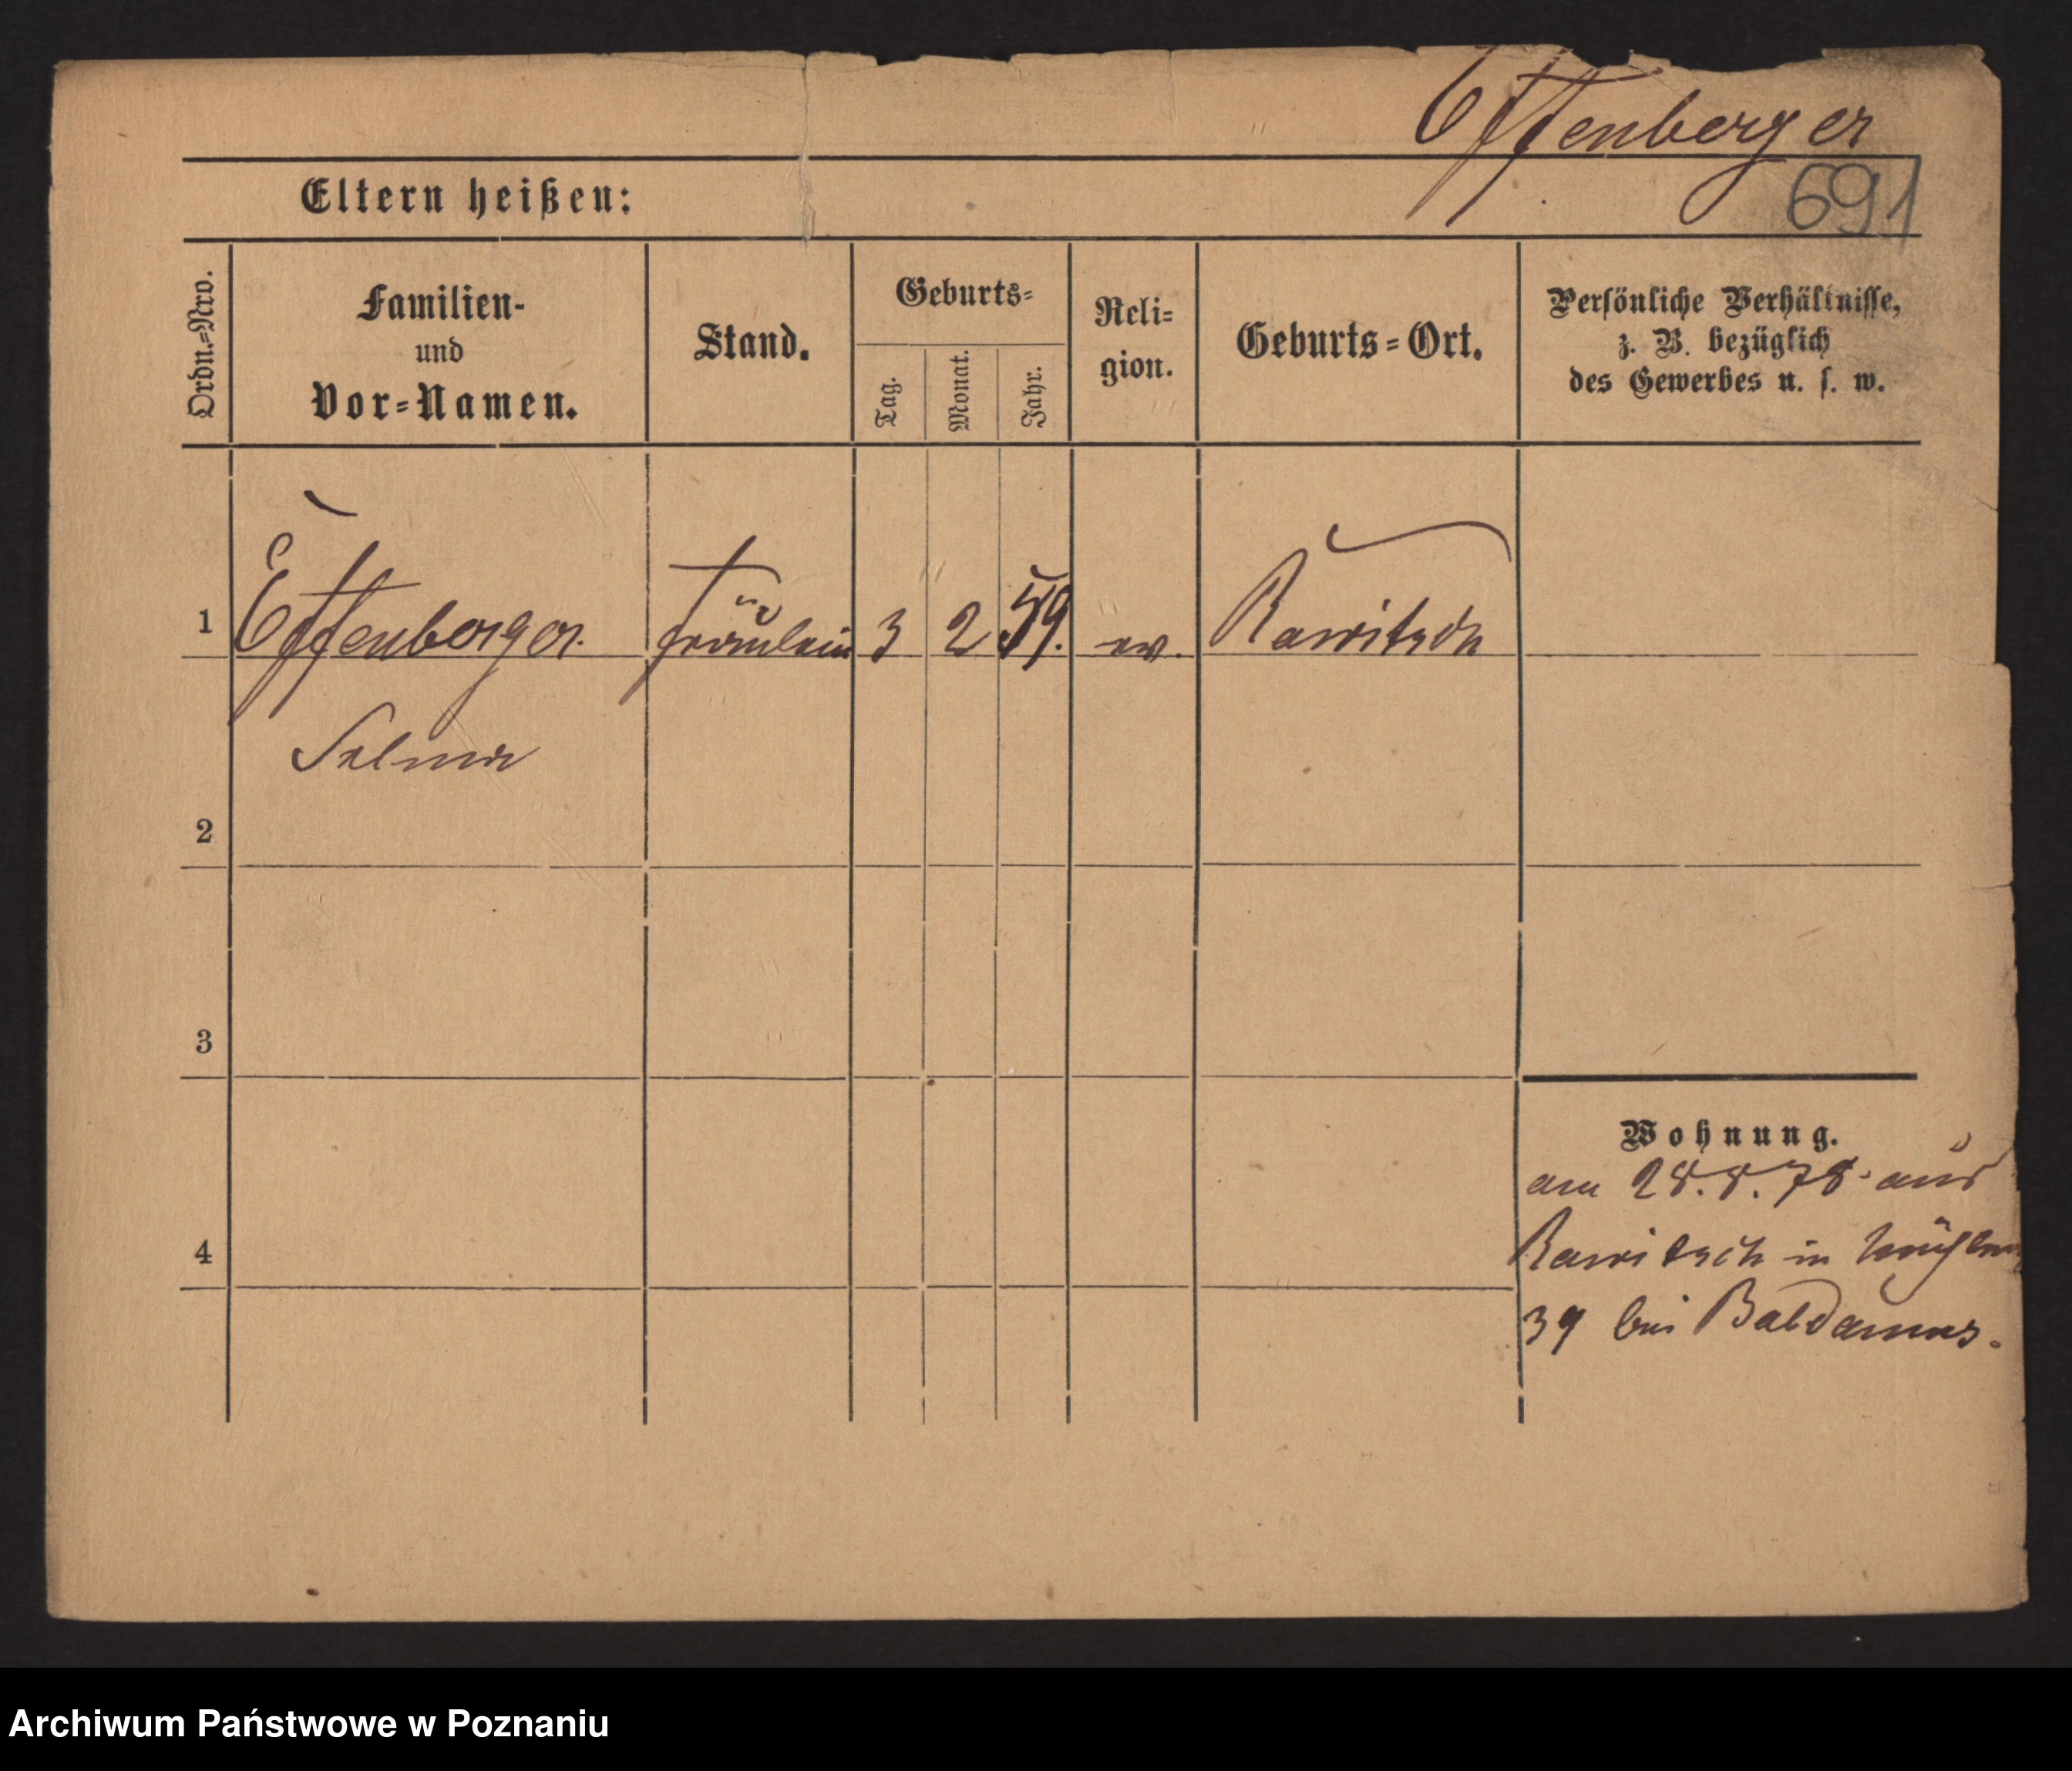 Effenberger
691
Eltern heißen:
Ordn.=Nro.
Familien-
und
Vor=Namen.
Stand.
Geburts=
Tag.
Monat.
Jahr.
Reli=
gion.
Geburts=Ort.
Persönliche Verhältnisse,
z. B. bezüglich
des Gewerbes u. s. w.
1
Effenberger. Fräulein 3 2 59. ev. Rawitsch
Selma
2
3
4
Wohnung.
am 28.8.78. aus
Rawitsch in
39 bei Baldamus.
Archiwum Państwowe w Poznaniu